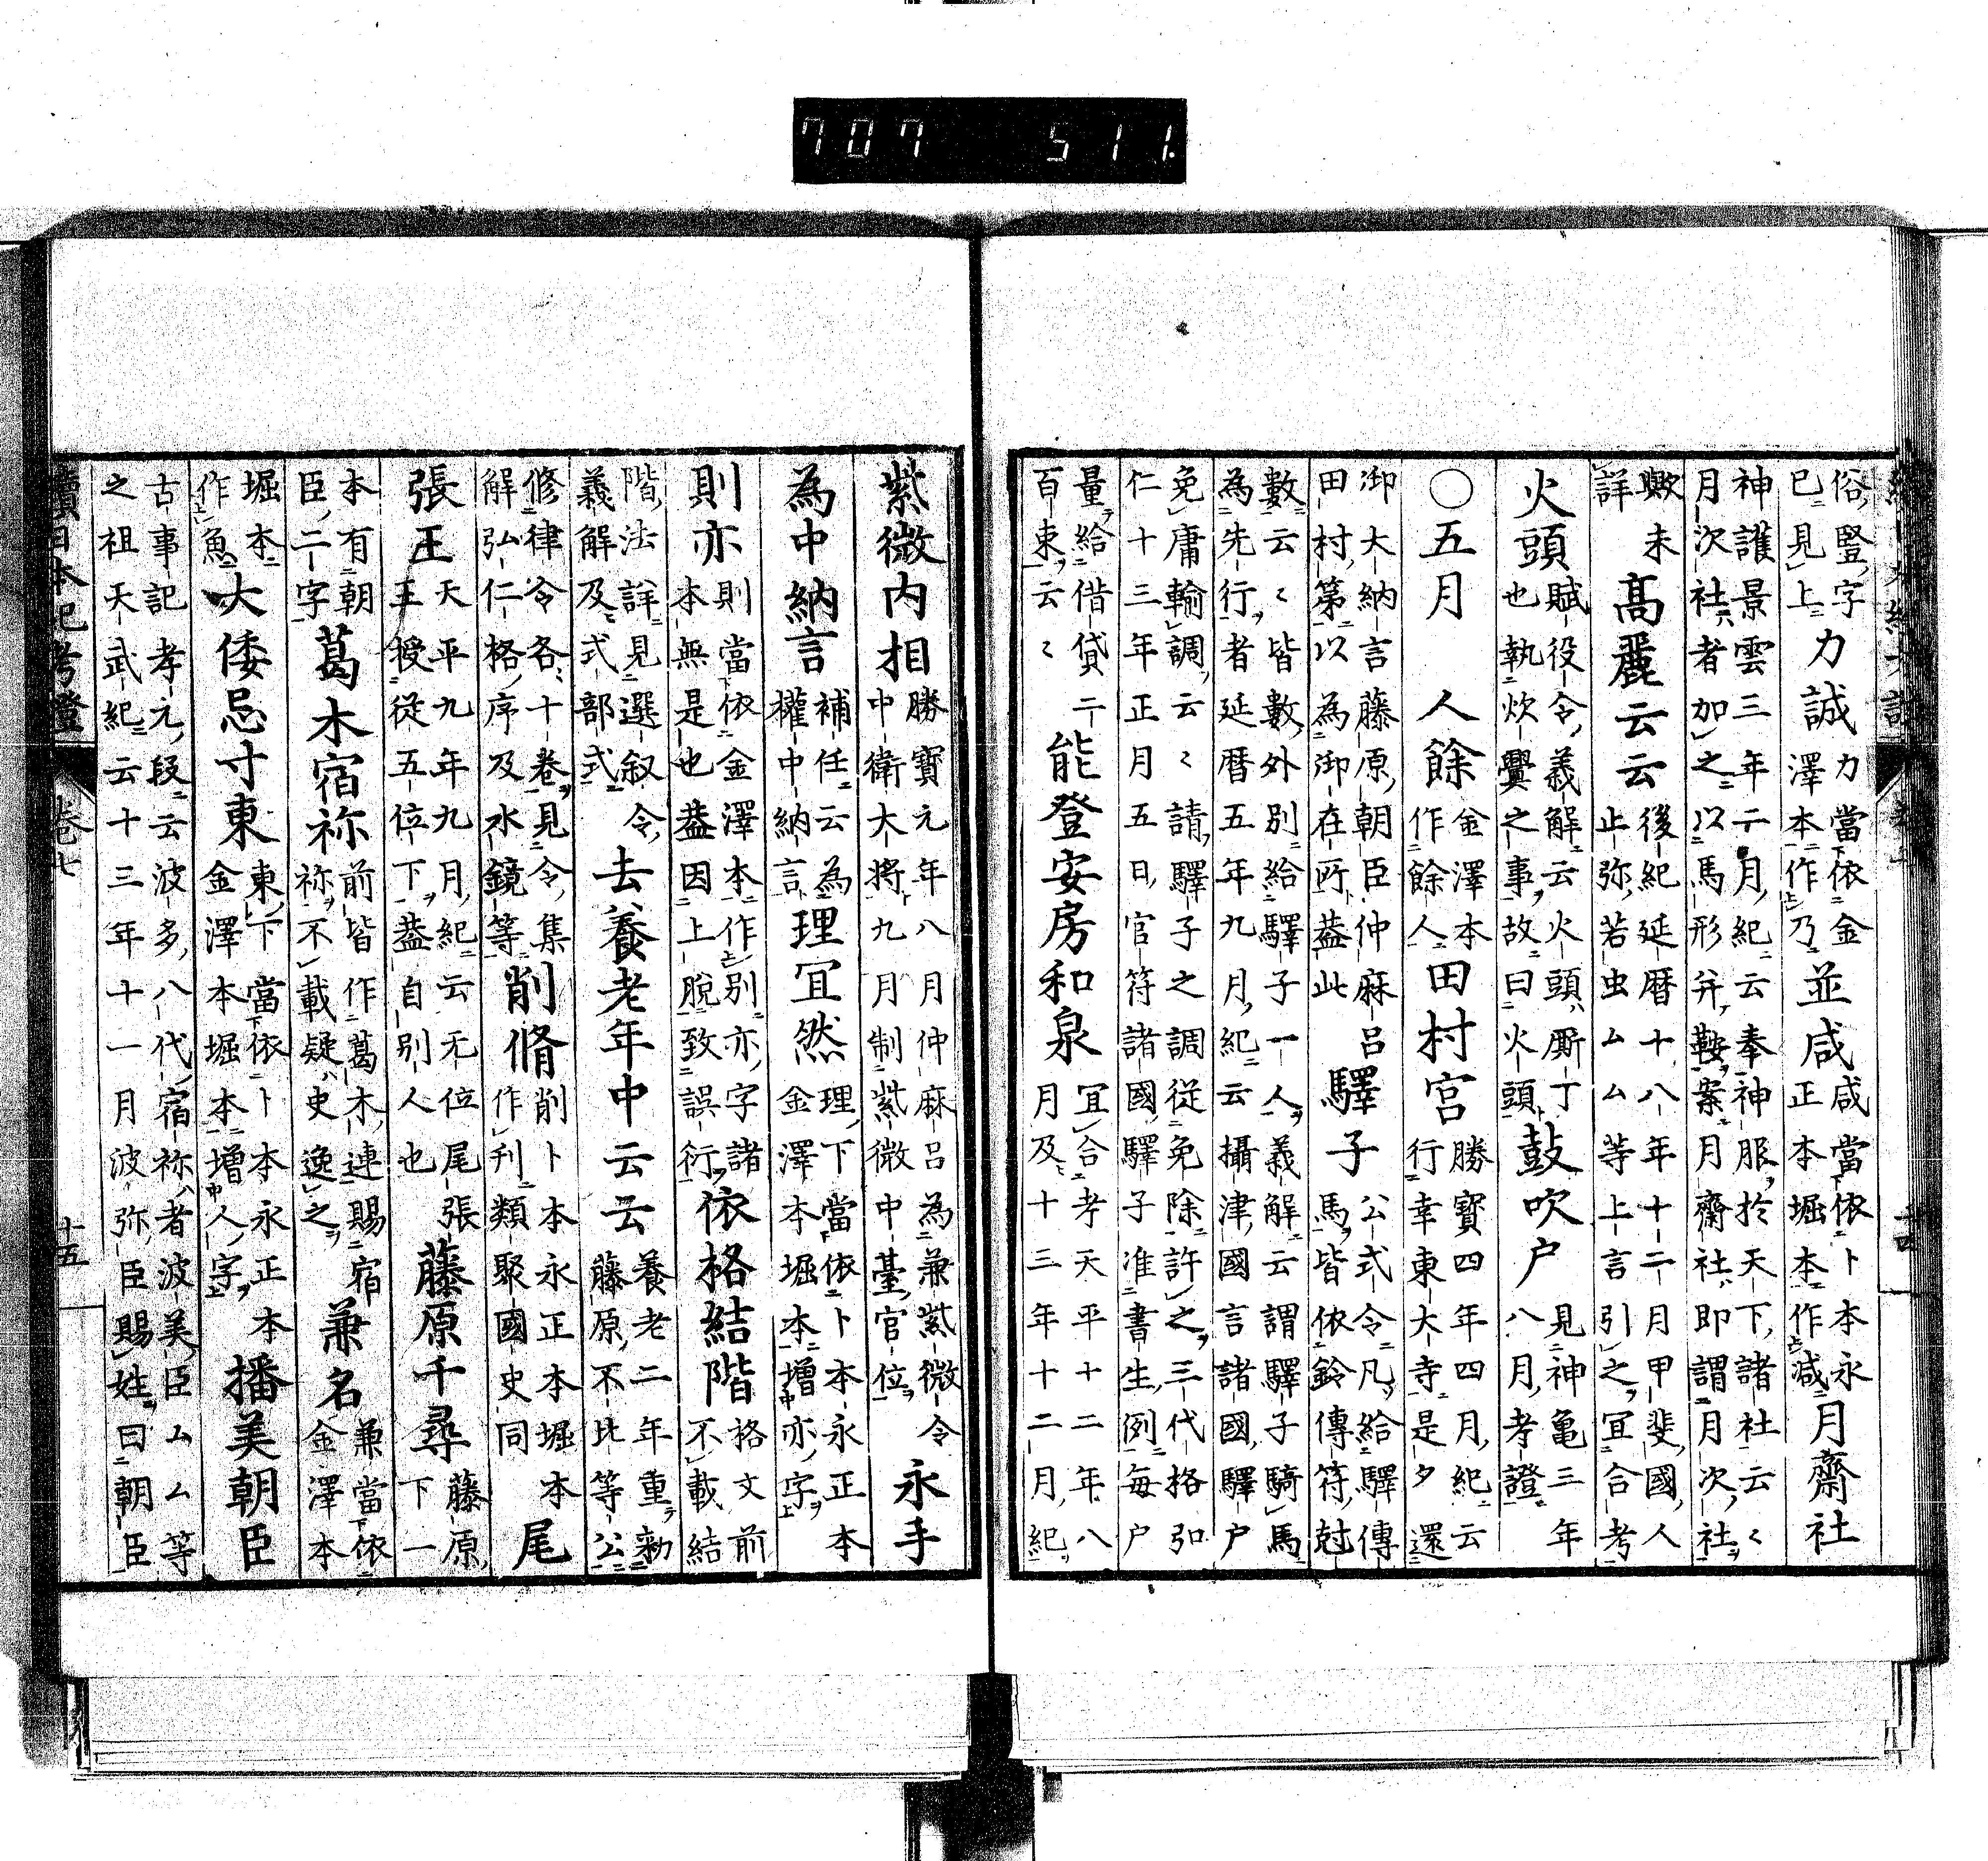 俗豎字
已見上
力誠
力當依金
澤本作乃
並咸
咸當依卜本永
正本堀本作減
月齋社
神護景雲三年二月紀云奉神服於天下諸社云〻
月次社者加之以馬形并鞍案月齋社即謂月次社
歟未
詳
高麗云云
後紀延暦十八年十二月甲斐國人
止弥若虫ムム等上言引之宜合考
火頭
賦役令義解云火頭厮丁
也執炊爨之事故曰火頭
鼓吹户
見神亀三年
八月考證
〇五月
人餘
金澤本
作餘人
田村宮
勝寶四年四月紀云
行幸東大寺是夕還
御大納言藤原朝臣仲麻呂
田村第以為御在所蓋此
驛子
公式令凡給驛傳
馬皆依鈴傳符尅
數云〻皆數外別給驛子一人義解云謂驛子騎馬
為先行者延暦五年九月紀云攝津國言諸國驛户
免庸輸調云〻請驛子之調從免除許之三代格弘
仁十三年正月五日官符諸國驛子准書生例毎户
量給借貸二
百束云〻
能登安房和泉
宜合考天平十二年八
月及十三年十二月紀
紫微内相
勝寶元年八月仲麻呂為兼紫微令
中衛大将九月制紫微中臺官位
永手
為中納言
補任云為
權中納言
理宜然
理下當依卜本永正本
金澤本堀本増亦字
則亦
則當依金澤本作別亦字諸
本無是也蓋因上脫致誤衍
依格結階
格文前
不載結
階法詳見選叙令
義解及式部式
去養老年中云云
養老二年重勅
藤原不比等公
修律令各十卷見令集
解弘仁格序及水鏡等
削脩
削卜本永正本堀本
作刋類聚國史同
尾
張王
天平九年九月紀云无位尾張
王授従五位下蓋自別人也
藤原千尋
藤原
下一
本有朝
臣二字
葛木宿祢
前皆作葛木連賜宿
祢不載疑史逸之
兼名
兼當依
金澤本
堀本
作魚
大倭忌寸東
東下當依卜本永正本
金澤本堀本増人字
播美朝臣
古事記孝元段云波多八代宿祢者波美臣ムムム等
之祖天武紀云十三年十一月波弥臣賜姓曰朝臣
續日本紀考證
卷七
十五